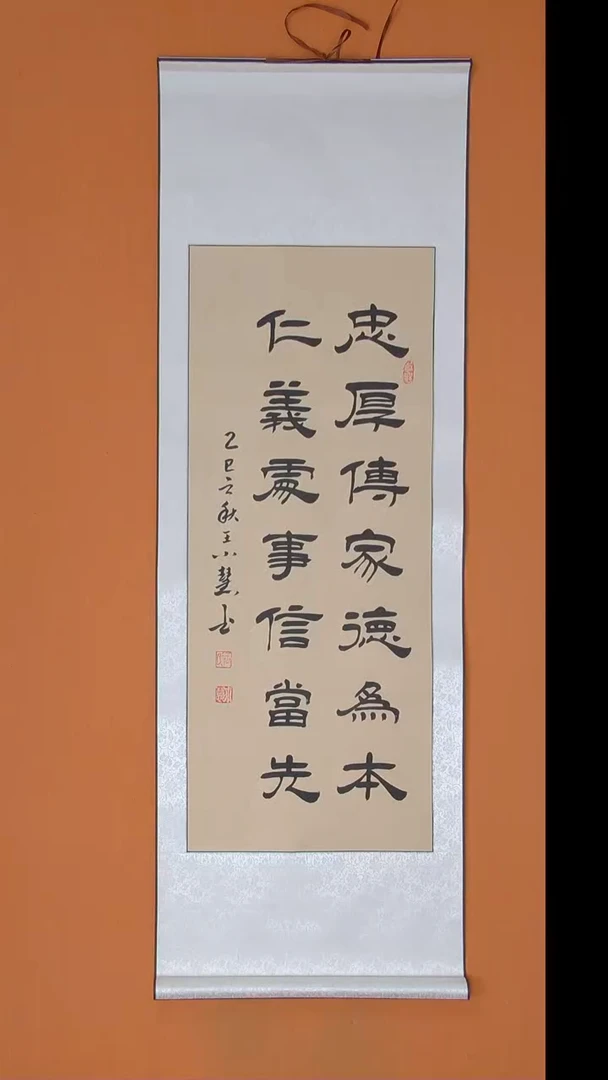 忠厚傳家德為本
仁義處事信當先
乙巳之秋王小慧书